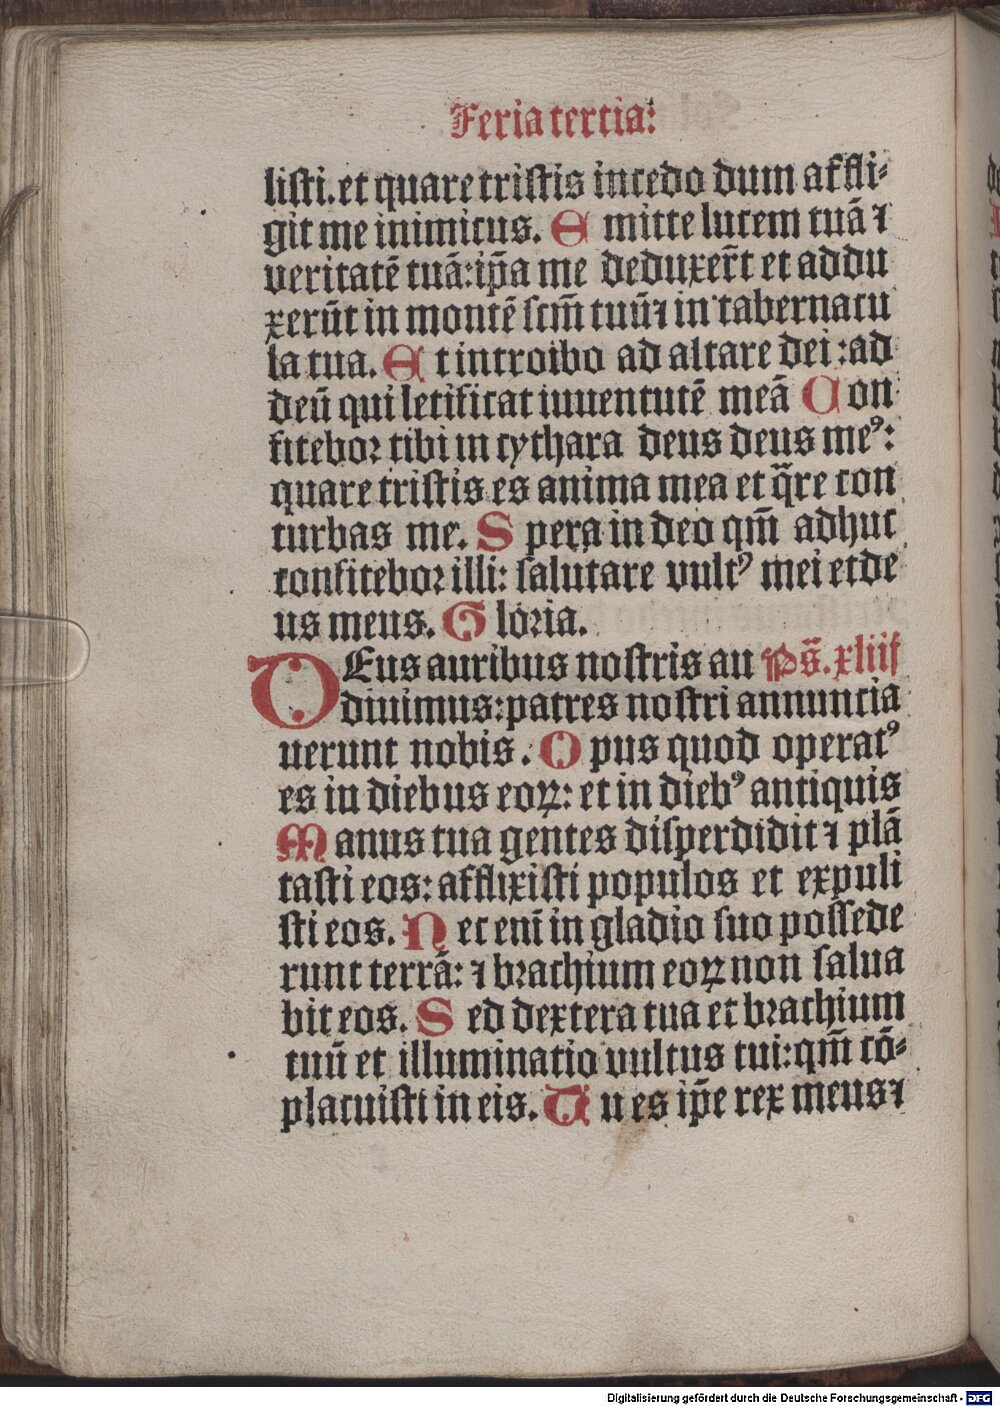 Feria tertia:
listi. et quare tristis incedo dum affli⸗
git me inimicus. E mitte lucem tuā ⁊
veritatē tuā: ip̄a me deduxer̄t et addu
xerūt in montē scm̄ tuū ⁊ in tabernacu
la tua. E t introibo ad altare dei: ad
deū qui letificat iuuentutē meā C on
fitebor tibi in cythara deus deus meꝰ:
quare tristis es anima mea et q̄re con
turbas me. S pera in deo qm̄ adhuc
confitebor illi: salutare vultꝰ mei et de
us meus. G loria.
DEus auribus nostris au Ps̄. xliij
diuimus: patres nostri annuncia
uerunt nobis. O pus quod operatꝰ
es in diebus eoꝝ: et in diebꝰ antiquis
M anus tua gentes disperdidit ⁊ plā
tasti eos: afflixisti populos et expuli
sti eos. N ec enī in gladio suo possede
runt terrā: ⁊ brachium eoꝝ non salua
bit eos. S ed dextera tua et brachium
tuū et illuminatio vultus tui: qm̄ cō⸗
placuisti in eis. T u es ip̄e rex meus ⁊
Digitalisierung gefördert durch die Deutsche Forschungsgemeinschaft - DFG